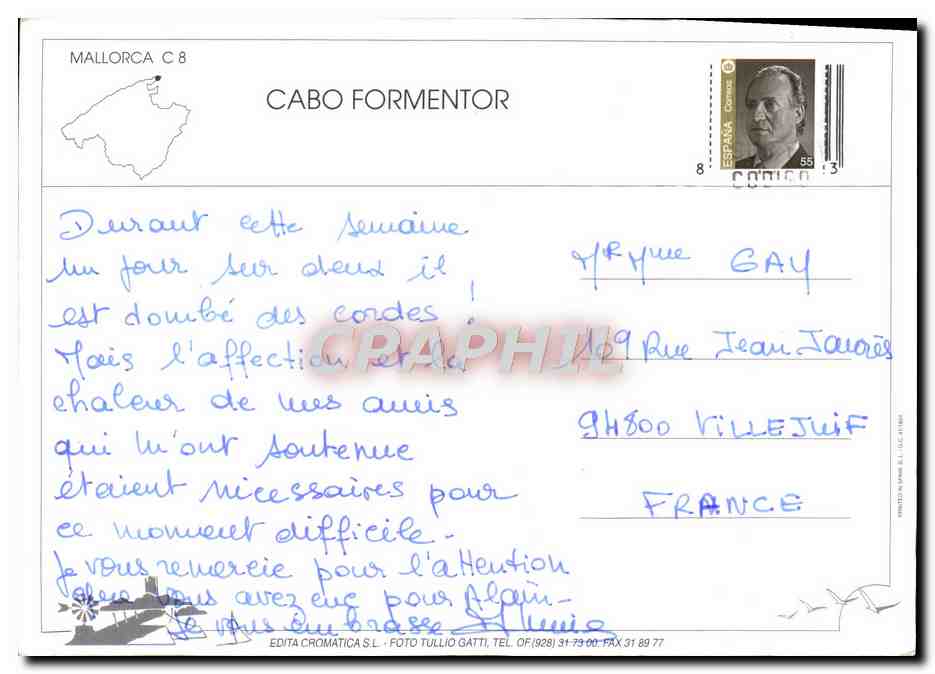 MALLORCA C 8
CABO FORMENTOR
ESPAÑA Correos
55
8 CODIGO 3
Durant cette semaine
un jour sur deux il
est tombé des cordes !
Mais l'affection et la
chaleur de mes amis
qui m'ont soutenue
étaient nécessaires pour
ce moment difficile -
Je vous remercie pour l'attention
que vous avez eue pour Alain -
Je vous embrasse
Mr Mme GAY
169 Rue Jean Jaurès
94800 VILLEJUIF
FRANCE
CPAPHIL
EDITA CROMATICA S.L. - FOTO TULLIO GATTI, TEL. OF.(928) 31 73 00, FAX 31 89 77
PRINTED IN SPAIN